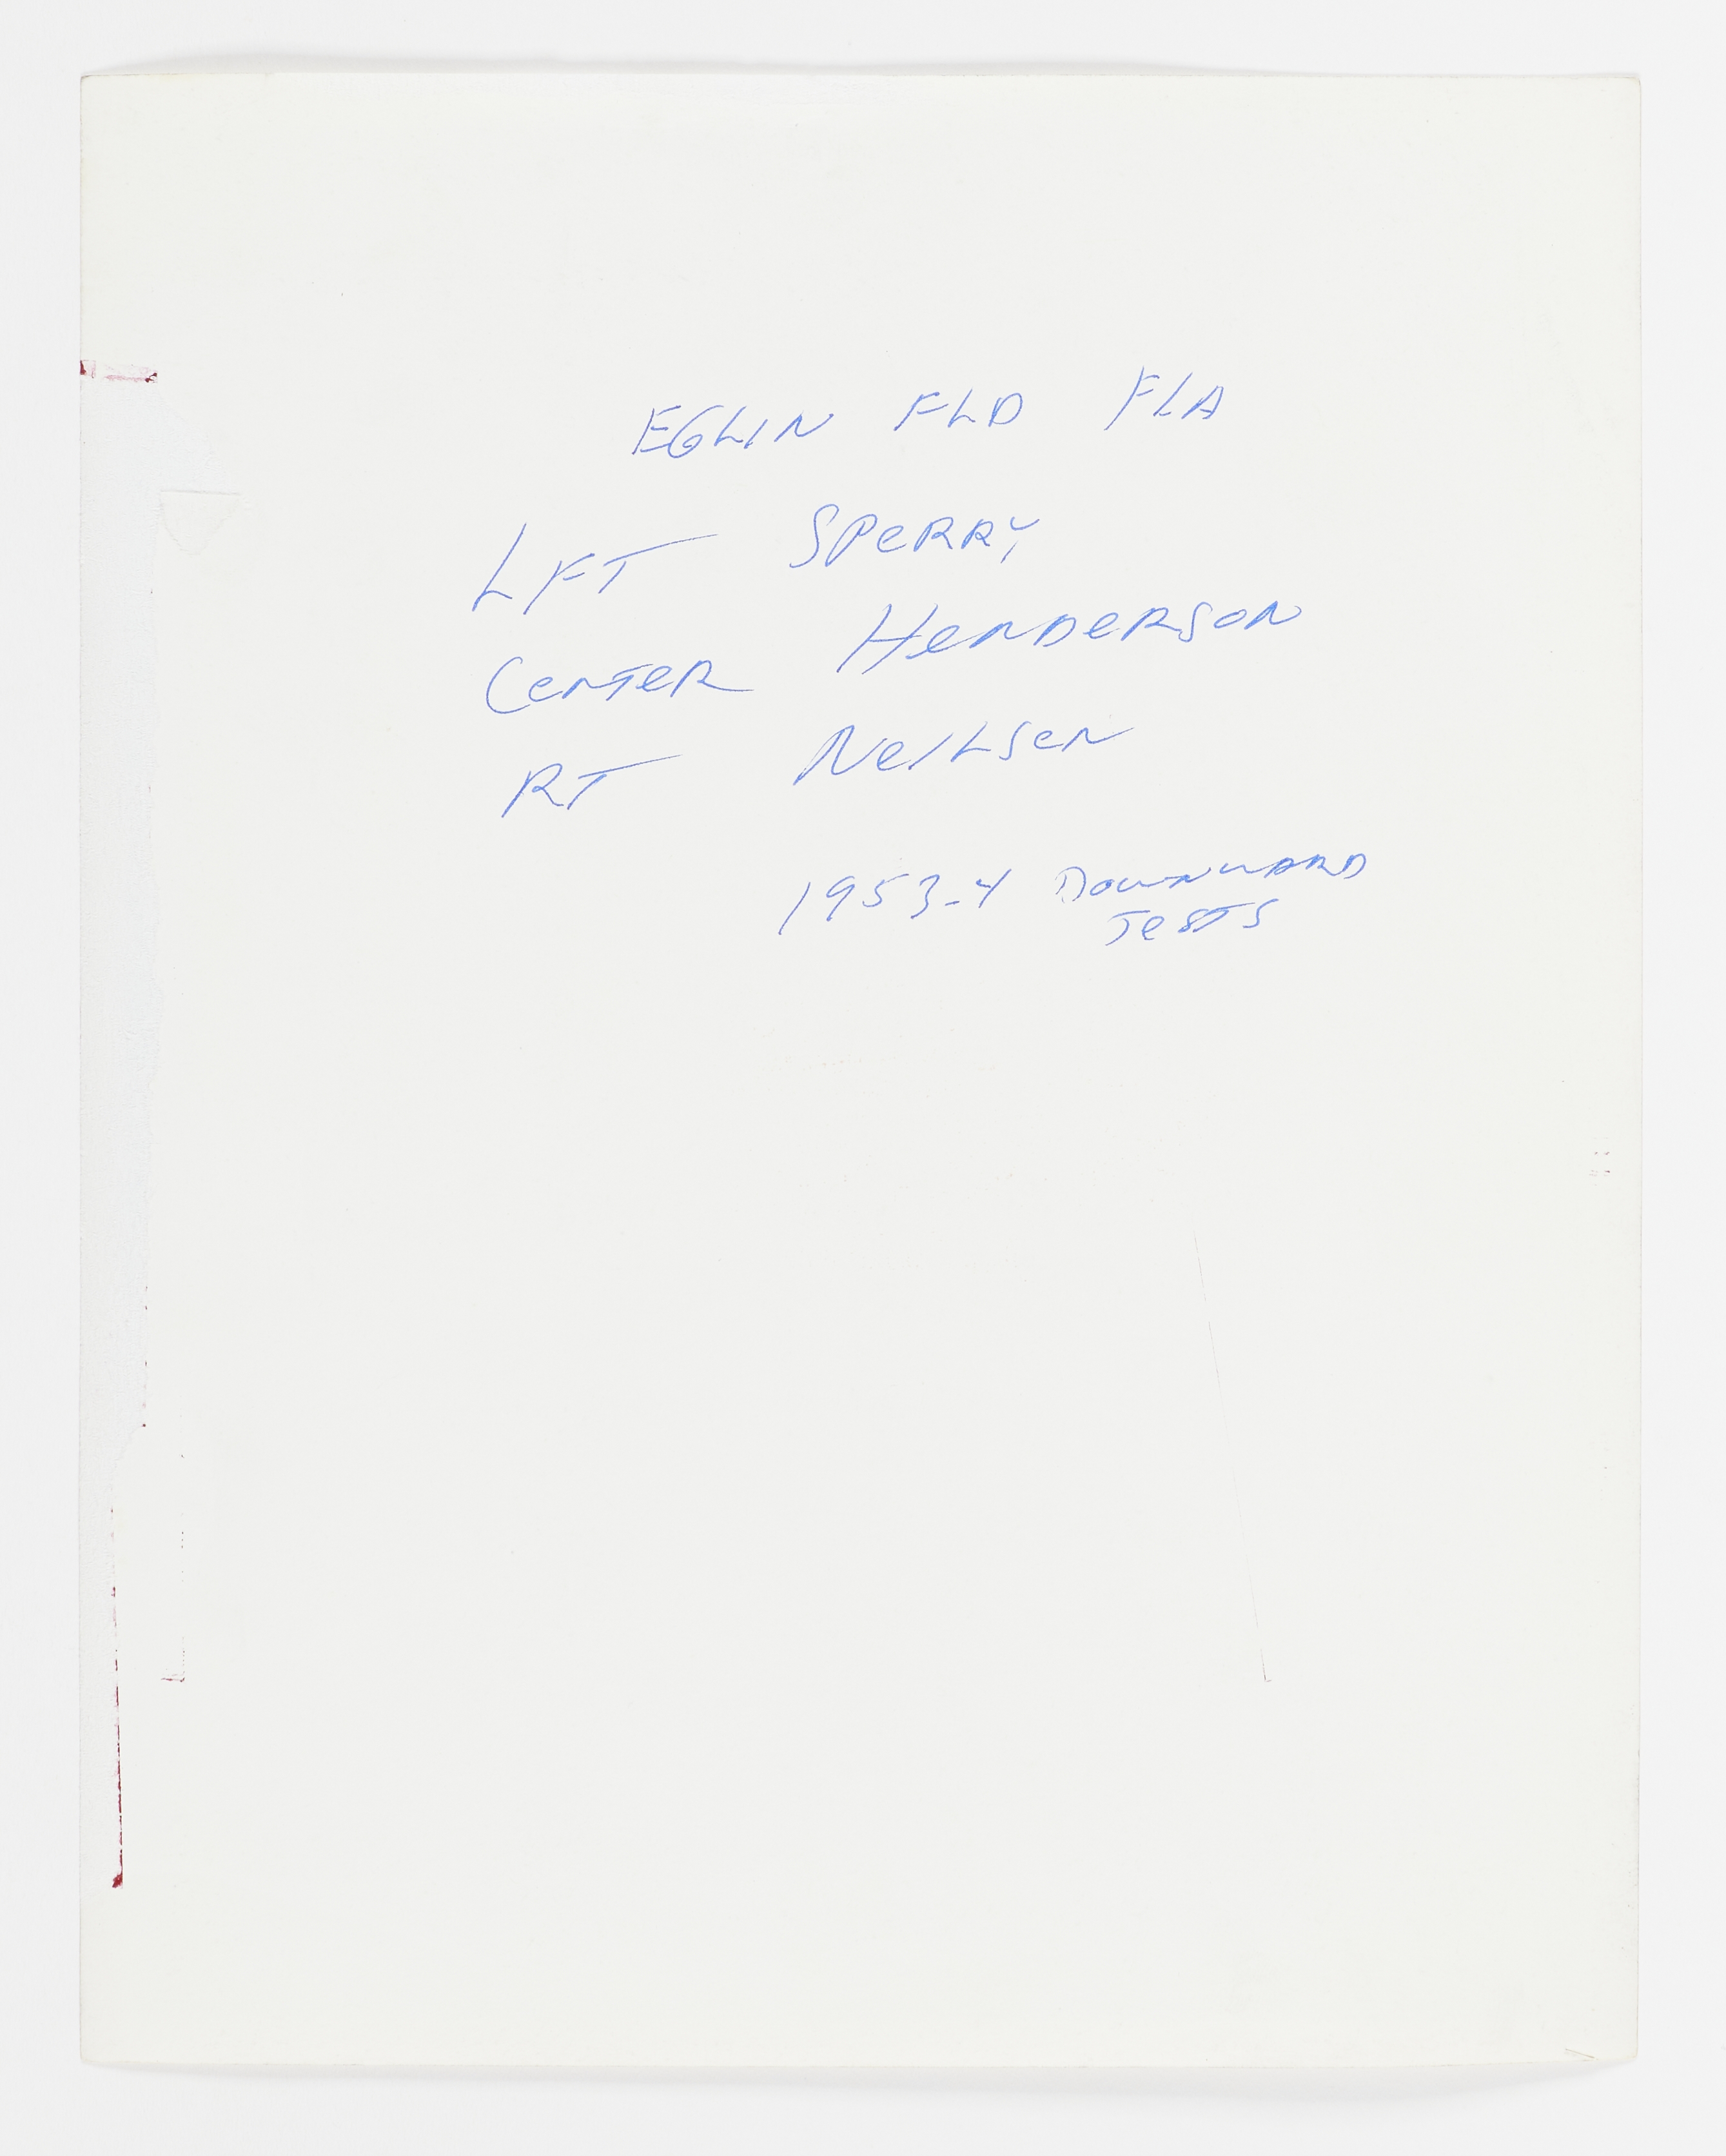 EGLIN FLD FLA
LFT SPERRY
CENTER HENDERSON
RT NEILSEN
1953-4 DOWNWARD
TESTS